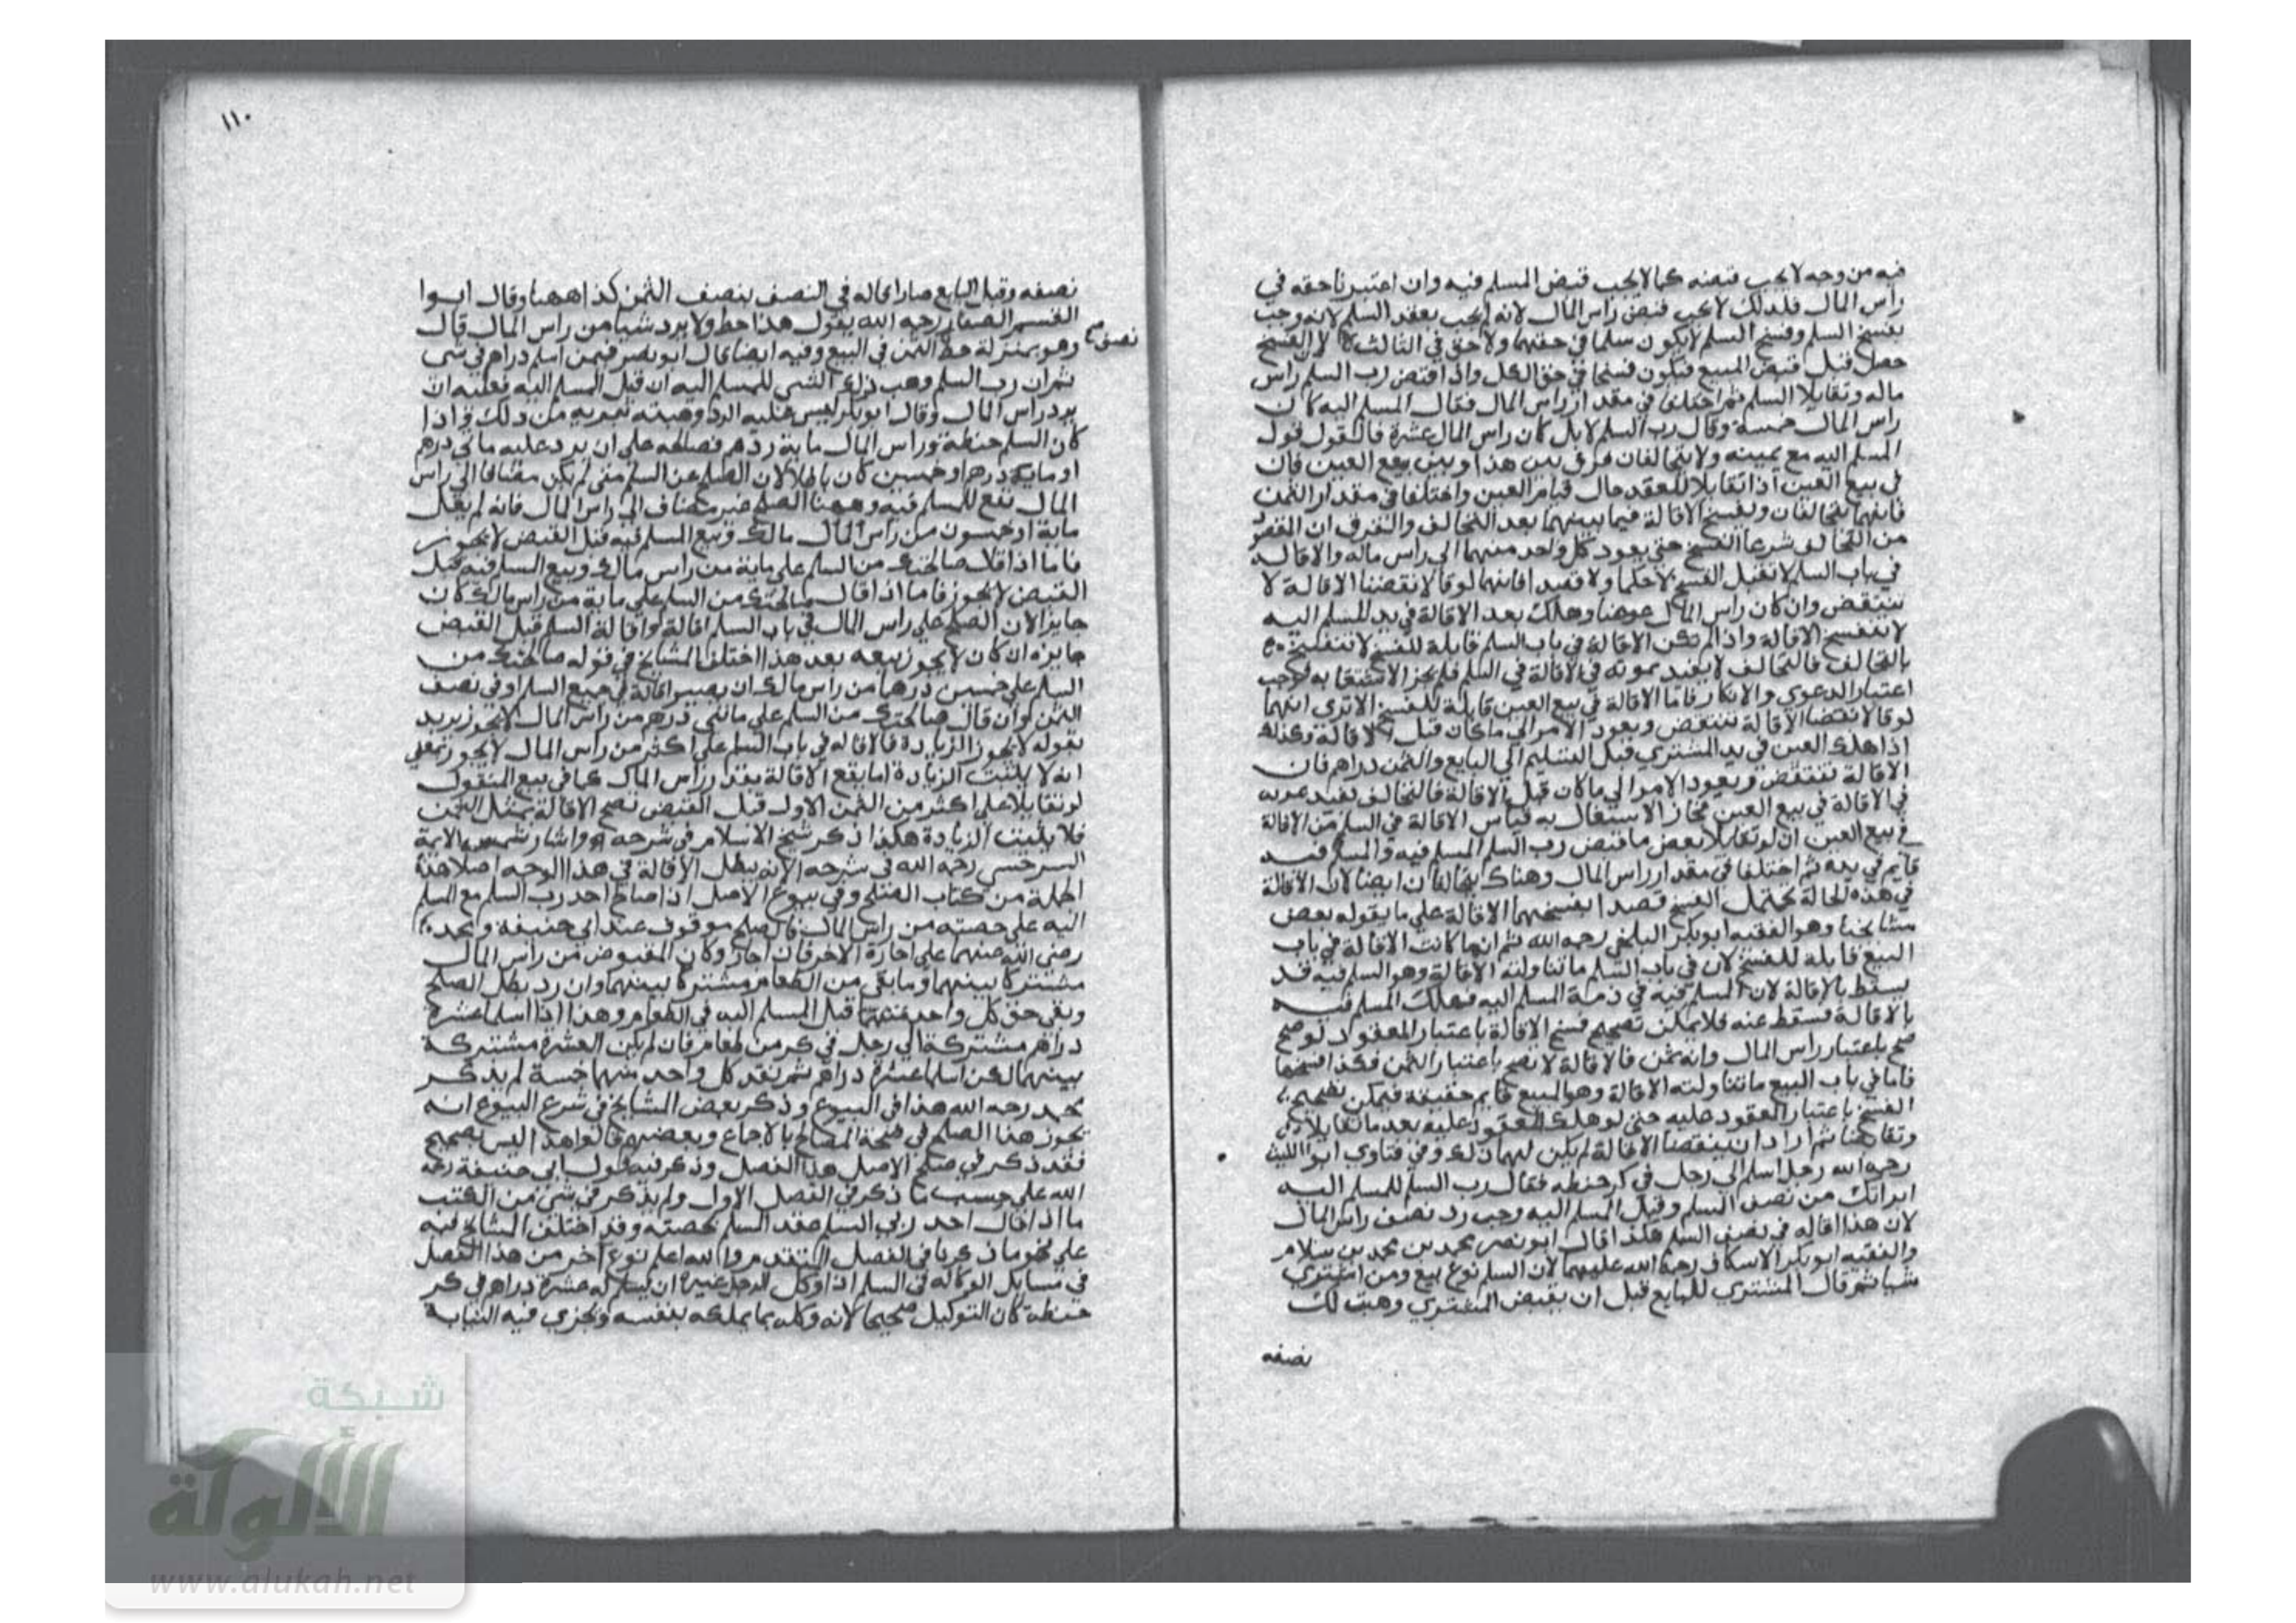 فيه من وجه لا يجب قبضه كما لا يجب قبض المسلم فيه وان اعتبرنا حقه في
راس المال فلذلك لا يجب قبض راس المال لانه لم يجب بعقد السلم لانه وجب
بفسخ السلم وفسخ السلم لا يكون سلما في حقهما ولا حق في الثالث لان الفسخ
حصل قبل قبض المبيع فيكون فسخا في حق الكل واذا قبض رب السلم راس
ماله وتقايلا السلم ثم اختلفا في مقدار راس المال فقال المسلم اليه كان
راس المال خمسة وقال رب السلم لا بل كان راس المال عشرة فالقول قول
المسلم اليه مع يمينه ولا يتحالفان فرق بين هذا وبين بيع العين فان
في بيع العين اذا تقايلا العقد حال قيام العين واختلفا في مقدار الثمن
فانهما يتحالفان ويفسخ الاقالة فيما بينهما بعد التحالف والفرق ان المقصود
من التحالف شرعا الفسخ حتى يعود كل واحد منهما الى راس ماله والاقالة
في باب السلم لا تقبل الفسخ لا حكما ولا قصدا فانهما لو قالا نقضنا الاقالة لا
ينتقض وان كان راس المال عوضا وهلك بعد الاقالة في يد المسلم اليه
لا ينفسخ الاقالة واذا لم تكن الاقالة في باب السلم قابلة للفسخ لا تنفسخ
بالتحالف فالتحالف لا يفيد ثمرته في الاقالة في السلم فلم يجز الاشتغال به لوجب
اعتبار الدعوي والانكار فاما الاقالة في بيع العين قابلة للفسخ الا ترى انهما
لو قالا نقضنا الاقالة تنتقض ويعود الامر الي ما كان قبل الاقالة وكذلك
اذا هلك العين في يد المشتري قبل التسليم الي البايع والثمن دراهم فان
الاقالة تنتقض ويعود الامر الي ما كان قبل الاقالة فالتحالف يفيد ثمرته
في الاقالة في بيع العين فجاز الاشتغال به قياس الاقالة في السلم من الاقالة
في بيع العين ان لو تقايلا بعض ما قبض رب السلم المسلم فيه والمسلم فيه
قايم في يده ثم اختلفا في مقدار راس المال وهناك يتحالفان ايضا لان الاقالة
في هذه الحالة تحتمل الفسخ قصدا بفسخهما الاقالة علي ما يقوله بعض
مشايخنا وهو الفقيه ابو بكر البلخي رحمه الله ثم انما كانت الاقالة في باب
البيع قابلة للفسخ لان في باب السلم ما تناولته الاقالة وهو المسلم فيه قد
يسقط بالاقالة لان المسلم فيه في ذمة المسلم اليه فهلك المسلم فيه
بالاقالة فسقط عنه فلا يمكن تصحيح فسخ الاقالة باعتبار المعقود لو صح
صح باعتبار راس المال وانه ثمن فالاقالة لا تصح باعتبار الثمن فكذا فسخها
فاما في باب البيع ما تناولته الاقالة وهو المبيع قايم حقيقة فيمكن تصحيح
الفسخ باعتبار المعقود عليه حتى لو هلك المعقود عليه بعد ما تقايلا
وتقابضا ثم ارادا ان ينقضا الاقالة لم يكن لهما ذلك وفي فتاوى ابو الليث
رحمه الله رجل اسلم الى رجل في كر حنطه فقال رب السلم للمسلم اليه
ابراتك من نصف السلم وقبل المسلم اليه وجب رد نصف راس المال
لان هذا اقاله في نصف السلم هكذا قال ابو نصر محمد بن محمد بن سلام
والفقيه ابو بكر الاسكاف رحمة الله عليهما لان السلم نوع بيع ومن اشترى
شيا ثم قال المشتري للبايع قبل ان يقبض المشتري وهبت لك
نصفه
١١٠
نصفه وقبل البايع صار اقاله في النصف بنصف الثمن كذا ههنا وقال ابوا
القسم الصفار رحمه الله يقول هذا حط ولا يرد شيا من راس المال قال
وهو بمنزلة حط الثمن في البيع وفيه ايضا قال ابو نصر فيمن اسلم دراهم في شي
ثم ان رب السلم وهب ذلك الشي للمسلم اليه ان قبل المسلم اليه فعليه ان
يرد راس المال وقال ابو بكر ليس عليه الرد وهبته تبريه من ذلك واذا
كان السلم حنطة وراس المال ماية درهم فصالحه علي ان يرد عليه مائتي درهم
او ماية درهم او خمسين كان باطلا لان الصلح عن السلم متى لم يكن مضافا الي راس
المال بيع للمسلم فيه وههنا الصلح غير مضاف الي راس المال فانه لم يقل
ماية او خمسون من راس المال مالك وبيع المسلم فيه قبل القبض لا يجوز
فاما اذا قال صالحتك من السلم علي ماية من راس مالك وبيع السلم فيه قبل
القبض لا يجوز فاما اذا قال صالحتك من السلم علي ماية من راس مالك كان
جايزا لان الصلح علي راس المال في باب السلم اقالة واقالة السلم قبل القبض
جايزه ان كان لا يجوز بيعه بعد هذا اختلف المشايخ في قوله صالحتك من
السلم علي خمسين درهما من راس مالك ان يصير اقالة في جميع السلم او في نصف
الثمن وان قال صالحتك من السلم علي مائتي درهم من راس المال لا يجوز يريد
بقوله لا يجوز الزيادة فالاقاله في باب السلم علي اكثر من راس المال لا يجوز بمعنى
انه لا يثبت الزيادة انما يقع الاقالة بقدر راس المال كما في بيع المنقول
لو تقايلا علي اكثر من الثمن الاول قبل القبض تصح الاقالة بمثل الثمن
فلا يثبت الزيادة هكذا ذكر شيخ الاسلام في شرحه واشار شمس الايمة
السرخسي رحمه الله في شرحه الا انه يبطل الاقالة في هذا الوجه اصلا هذه
الجملة من كتاب الصلح وفي بيوع الاصل اذا صالح احد رب السلم مع المسلم
اليه على حصته من راس المال فالصلح موقوف عند ابي حنيفة ومحمد
رضي الله عنهما علي اجازة الاخر فان اجاز وكان المقبوض من راس المال
مشتركا بينهما وما بقي من الطعام مشتركا بينهما وان رد بطل الصلح
وبقي حق كل واحد منهما قبل المسلم اليه في الطعام وهذا اذا اسلما عشرة
دراهم مشتركة الي رجل في كر من طعام فان لم يكن العشرة مشتركة
بينهما لكن اسلما عشرة دراهم ثم نقد كل واحد منهما خمسة لم يذكر
محمد رحمه الله هذا في البيوع وذكر بعض المشايخ في شرع البيوع انه
يجوز هذا الصلح في صحة المصالح بالاجماع وبعضهم قالوا هذا ليس بصحيح
فقد ذكر في صلح الاصل هذا الفصل وذكر فيه قول ابي حنيفة رحمه
الله علي حسب ما ذكر في الفصل الاول ولم يذكر في شي من الكتب
ما اذا قال احد ربي السلم عقد السلم بحصته وقد اختلف المشايخ فيه
علي نحو ما ذكرنا في الفصل المتقدم والله اعلم نوع آخر من هذا الفصل
في مسايل الوكاله في السلم اذا وكل الرجل غيره ان يسلم له عشرة دراهم في كر
حنطه كان التوكيل صحيحا لانه وكله بما يملكه بنفسه وتجزي فيه النيابه
نصف
شبكة
الألوكة
www.alukah.net